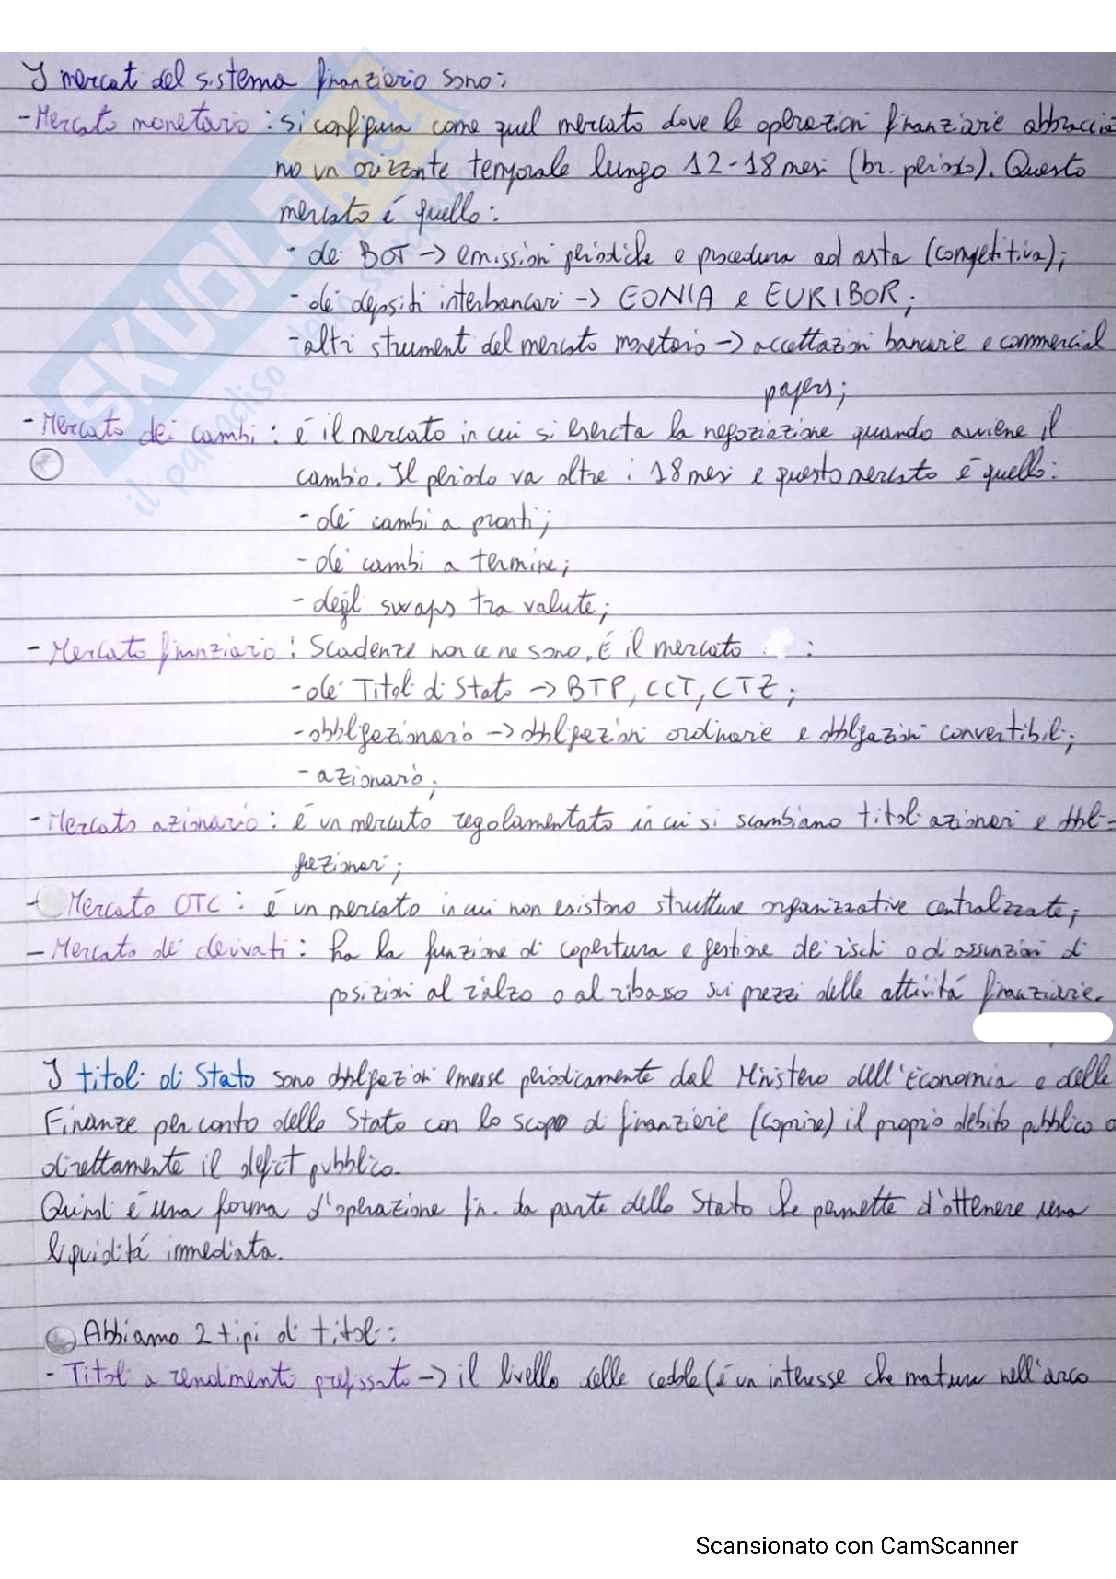 I mercati del sistema finanziario sono:
- Mercato monetario : si configura come quel mercato dove le operazioni finanziarie abbraccia
no un orizzonte temporale lungo 12-18 mesi (br. periodo). Questo
mercato é quello:
- dei BOT -> emissioni periodiche e procedura ad asta (competitiva);
- dei depositi interbancari -> EONIA e EURIBOR;
- altri strumenti del mercato monetario -> accettazioni bancarie e commercial
papers;
- Mercato dei cambi : é il mercato in cui si esercita la negoziazione quando avviene il
cambio. Il periodo va oltre i 18 mesi e questo mercato é quello:
- dei cambi a pronti;
- dei cambi a termine;
- degli swaps tra valute;
- Mercato finanziario : Scadenze non ce ne sono. É il mercato :
- dei Titoli di Stato -> BTP, CCT, CTZ;
- obbligazionario -> obbligazioni ordinarie e obbligazioni convertibili;
- azionario;
- Mercato azionario : é un mercato regolamentato in cui si scambiano titoli azionari e obbli-
gazionari;
- Mercato OTC : é un mercato in cui non esistono strutture organizzative centralizzate;
- Mercato dei derivati : ha la funzione di copertura e gestione dei rischi o di assunzioni di
posizioni al rialzo o al ribasso sui prezzi delle attivitá finanziarie.
I titoli di Stato sono obbligazioni emesse periodicamente dal Ministero dell'Economia e delle
Finanze per conto dello Stato con lo scopo di finanziare (coprire) il proprio debito pubblico o
direttamente il deficit pubblico.
Quindi é una forma d'operazione fin. da parte dello Stato che permette d'ottenere una
liquiditá immediata.
Abbiamo 2 tipi di titoli:
- Titoli a rendimento prefissato -> il livello delle cedole (é un interesse che matura nell'arco
SKUOLA.net
il paradiso dello studente
Scansionato con CamScanner